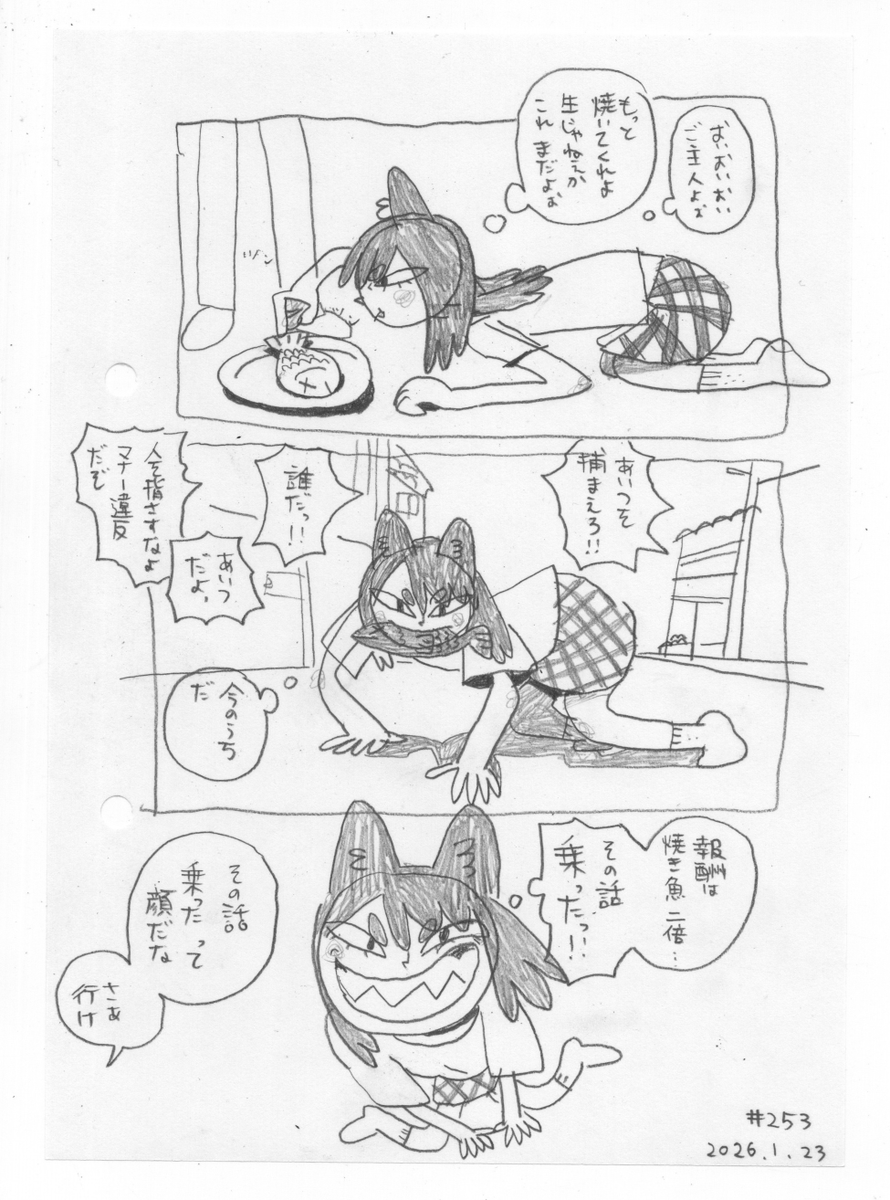 おいおいおい
ご主人よぉ
もっと
焼いてくれよ
生じゃねぇか
これ まだよぉ
ツン
あいつを
捕まえろ!!
誰だっ!!
あいつ
だよ。
人を指さすなよ
マナー違反
だぞ
今のうち
だ
報酬は
焼き魚 二倍…
その話
乗ったっ!!
その話
乗った って
顔だな
さあ
行け
#253
2026.1.23